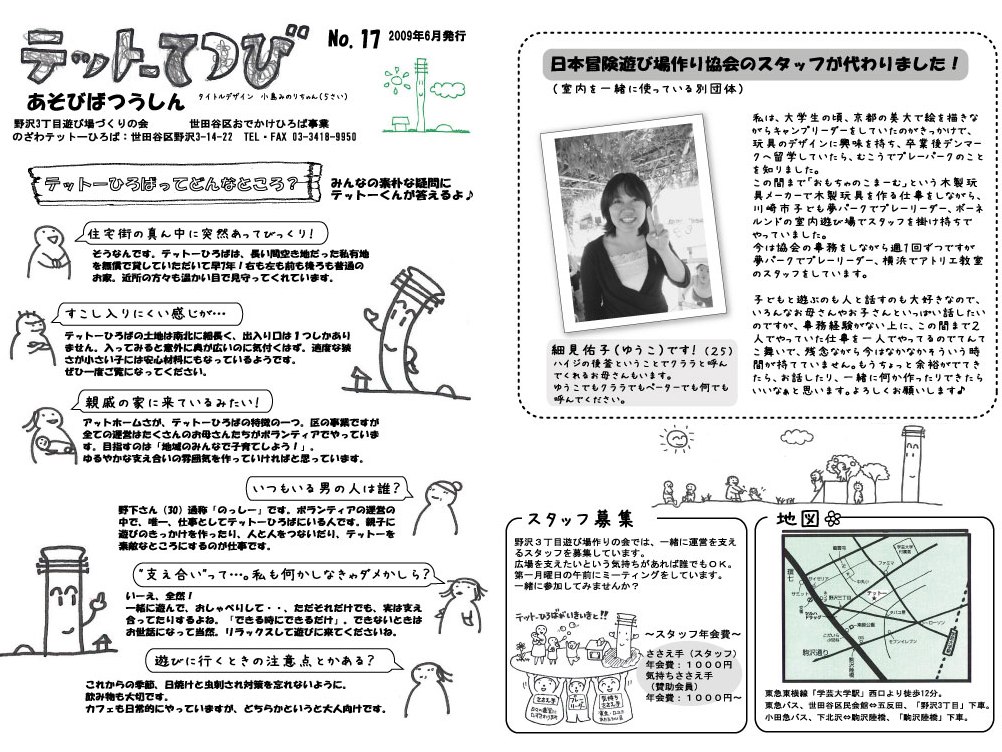 テットーてつび
No. 17 2009年6月発行
あそびばつうしん
タイトルデザイン 小島みのりちゃん(5さい)
野沢3丁目遊び場づくりの会 世田谷区おでかけひろば事業
のざわテットーひろば:世田谷区野沢3-14-22 TEL・FAX 03-3418-9950
テットーひろばってどんなところ?
みんなの素朴な疑問に
テットーくんが答えるよ♪
住宅街の真ん中に突然あってびっくり!
そうなんです。テットーひろばは、長い間空き地だった私有地
を無償で貸していただいて早7年!右も左も前も後ろも普通の
お家。近所の方々も温かい目で見守ってくれています。
すこし入りにくい感じが…
テットーひろばの土地は南北に細長く、出入り口は1つしかあり
ません。入ってみると意外に奥が広いのに気付くはず。適度な狭
さが小さい子には安心材料にもなっているようです。
ぜひ一度ご覧になってください。
親戚の家に来ているみたい!
アットホームさが、テットーひろばの特徴の一つ。区の事業ですが
全ての運営はたくさんのお母さんたちがボランティアでやっていま
す。目指すのは「地域のみんなで子育てしよう!」。
ゆるやかな支え合いの雰囲気を作っていければと思っています。
いつもいる男の人は誰?
野下さん(30)通称「のっしー」です。ボランティアの運営の
中で、唯一、仕事としてテットーひろばにいる人です。親子に
遊びのきっかけを作ったり、人と人をつないだり、テットーを
素敵なところにするのが仕事です。
"支え合い"って…。私も何かしなきゃダメかしら?
いーえ、全然!
一緒に遊んで、おしゃべりして・・、ただそれだけでも、実は支え
合ってたりするよね。「できる時にできるだけ」。できないときは
お世話になって当然。リラックスして遊びに来てくださいね。
遊びに行くときの注意点とかある?
これからの季節、日焼けと虫刺され対策を忘れないように。
飲み物も大切です。
カフェも日常的にやっていますが、どちらかというと大人向けです。
日本冒険遊び場作り協会のスタッフが代わりました!
(室内を一緒に使っている別団体)
私は、大学生の頃、京都の美大で絵を描きな
がらキャンプリーダーをしていたのがきっかけで、
玩具のデザインに興味を持ち、卒業後デンマー
クへ留学していたら、むこうでプレーパークのこと
を知りました。
この間まで「おもちゃのこまーむ」という木製玩
具メーカーで木製玩具を作る仕事をしながら、
川崎市子ども夢パークでプレーリーダー、ボーネ
ルンドの室内遊び場でスタッフを掛け持ちで
やっていました。
今は協会の事務をしながら週1回ずつですが
夢パークでプレーリーダー、横浜でアトリエ教室
のスタッフをしています。
子どもと遊ぶのも人と話すのも大好きなので、
いろんなお母さんやお子さんといっぱい話したい
のですが、事務経験がない上に、この間まで2
人でやっていた仕事を一人でやってるのでてんて
こ舞いで、残念ながら今はなかなかそういう時
間が持てていません。もうちょっと余裕がでてき
たら、お話したり、一緒に何か作ったりできたら
いいなぁと思います。よろしくお願いします♪
細見佑子(ゆうこ)です!(25)
ハイジの後釜ということでクララと呼ん
でくれるお母さんもいます。
ゆうこでもクララでもペーターでも何でも
呼んでください。
スタッフ募集
野沢3丁目遊び場作りの会では、一緒に運営を支え
るスタッフを募集しています。
広場を支えたいという気持ちがあれば誰でもOK。
第一月曜日の午前にミーティングをしています。
一緒に参加してみませんか?
テットーひろばがいきいきと!!
ささえ手
プレーリーダー
気持ち
ささえ手
~スタッフ年会費~
ささえ手(スタッフ)
年会費:1000円
気持ちささえ手
(賛助会員)
年会費:1000円~
地図
学芸大学
附属高
龍雲寺
ファミマ
環七
サミット
野沢三丁目
テットー
タバコ屋
ローソン
セブンイレブン
駒沢通り
駒沢陸橋
東急東横線「学芸大学駅」西口より徒歩12分。
東急バス、世田谷区民会館⇔五反田、「野沢3丁目」下車。
小田急バス、下北沢⇔駒沢陸橋、「駒沢陸橋」下車。